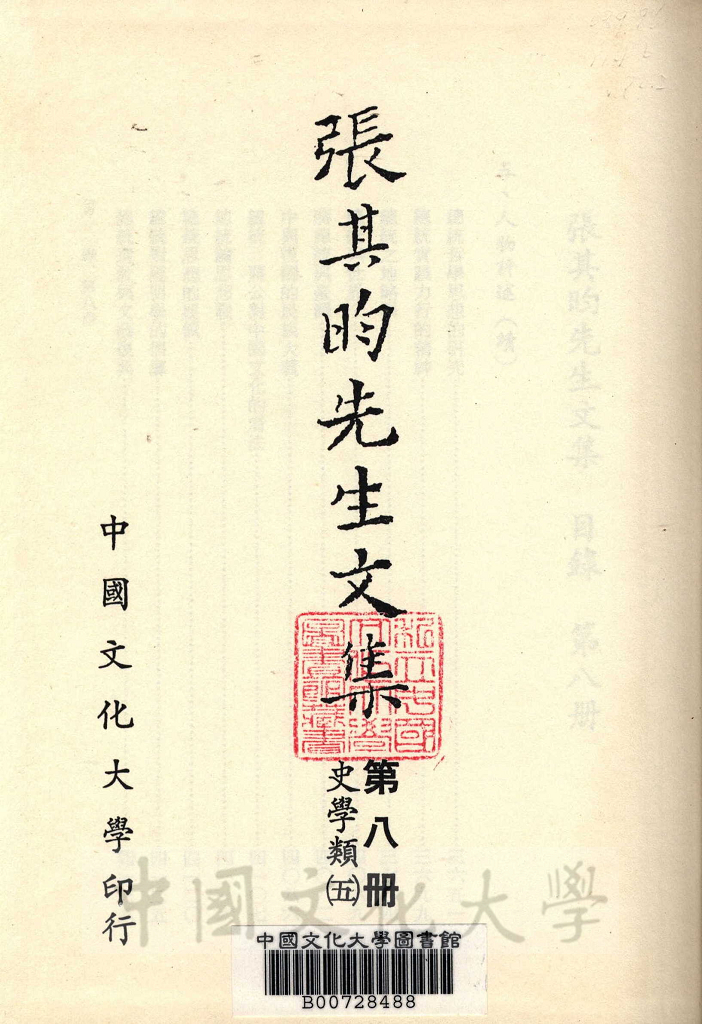 張其昀先生文集
第八册
史學類㈤
中國文化大學印行
中國文化大學
中國文化大學圖書館
B00728488